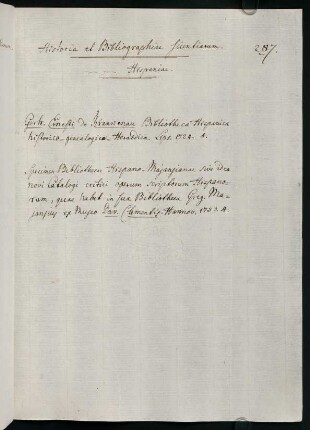 Historia et Bibliographia scientiarum 287.
Hispaniae.
Gerh. Ernesti de Franckenau Bibliotheca Hispanica
historico-genealogico-Heraldica Lips. 1724. 4.
Specimen Bibliothecae Hispano-Majansianae sive Idea
novi Catalogi critici operum scriptorum Hispano-
rum, quae habet in sua Bibliotheca Greg. Ma-
jansius ex Museo Dav. Clementis. Hannov. 1753. 4.